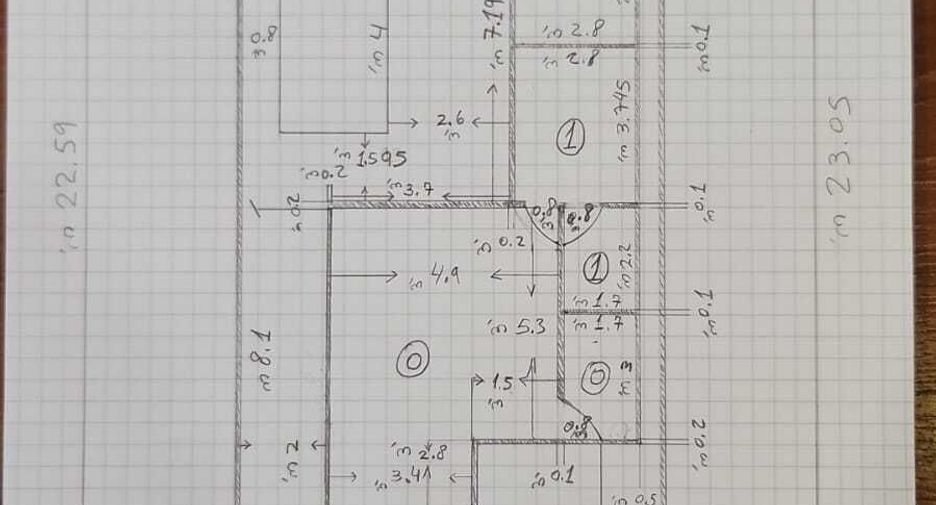 7.19 מ'
2.8 מ'
2.8 מ'
0.1 מ'
4 מ'
3.745 מ
2.6
מ'
1
22.59 מ'
23.05 מ'
1.595 מ'
0.2 מ'
3.7 מ'
0.2 מ'
0.8
0.8
0.1 מ'
0.2 מ'
4.9 מ'
1
2.2 מ'
1.7 מ'
1.7 מ'
0.1 מ'
5.3 מ'
8.1 מ
0
1.5
מ'
0
3 מ
0.8
2 מ'
2.8 מ'
0.2 מ'
3.41 מ'
0.1 מ'
0.5 מ'